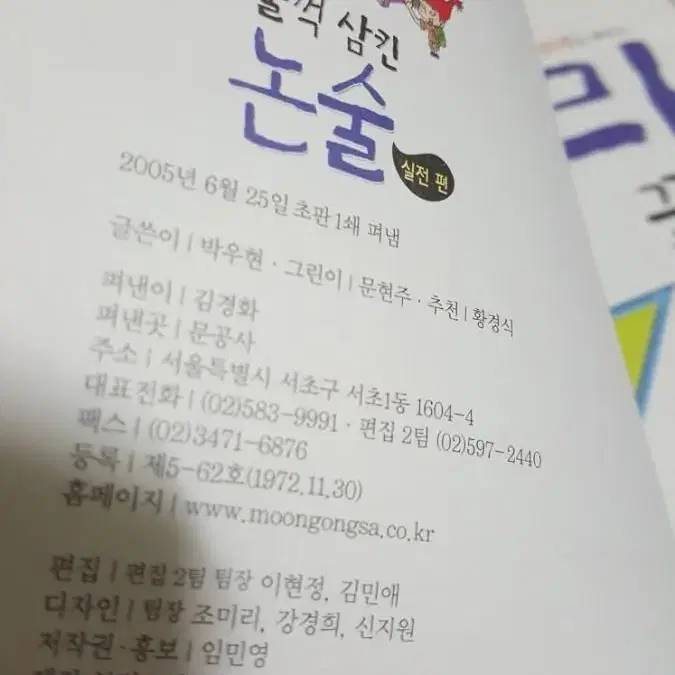 꺽 삼킨
논술
실전 편
2005년 6월 25일 초판 1쇄 펴냄
글쓴이 | 박우현 · 그린이 | 문현주 · 추천 | 황경식
펴낸이 | 김경화
펴낸곳 | 문공사
주소 | 서울특별시 서초구 서초1동 1604-4
대표전화 | (02)583-9991 · 편집 2팀 (02)597-2440
팩스 | (02)3471-6876
등록 | 제5-62호(1972.11.30)
홈페이지 | www.moongongsa.co.kr
편집 | 편집 2팀 팀장 이현정, 김민애
디자인 | 팀장 조미리, 강경희, 신지원
저작권·홍보 | 임민영